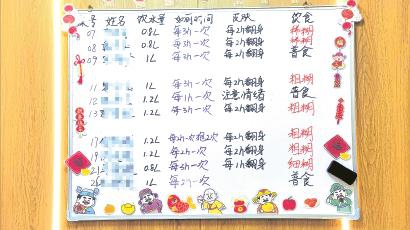 号 姓名 饮水量 如厕时间 皮肤 饮食
07 0.8L 每3h一次 每2h翻身 稀糊
08 0.8L 每3h一次 每2h翻身 稀糊
09 1L 每3h一次 每2h翻身 普食
11 1L 每3h一次 每2h翻身 粗糊
12 1.2L 每1h一次 注意情绪 普食
13 1.2L 每3h一次 每2h翻身 粗糊
17 1.2L 每2h一次 每2h翻身 粗糊
19 1.2L 每2h一次 每2h翻身 粗糊
0.8L 每3h一次 每1h翻身 细糊
1L 每2h一次 普食